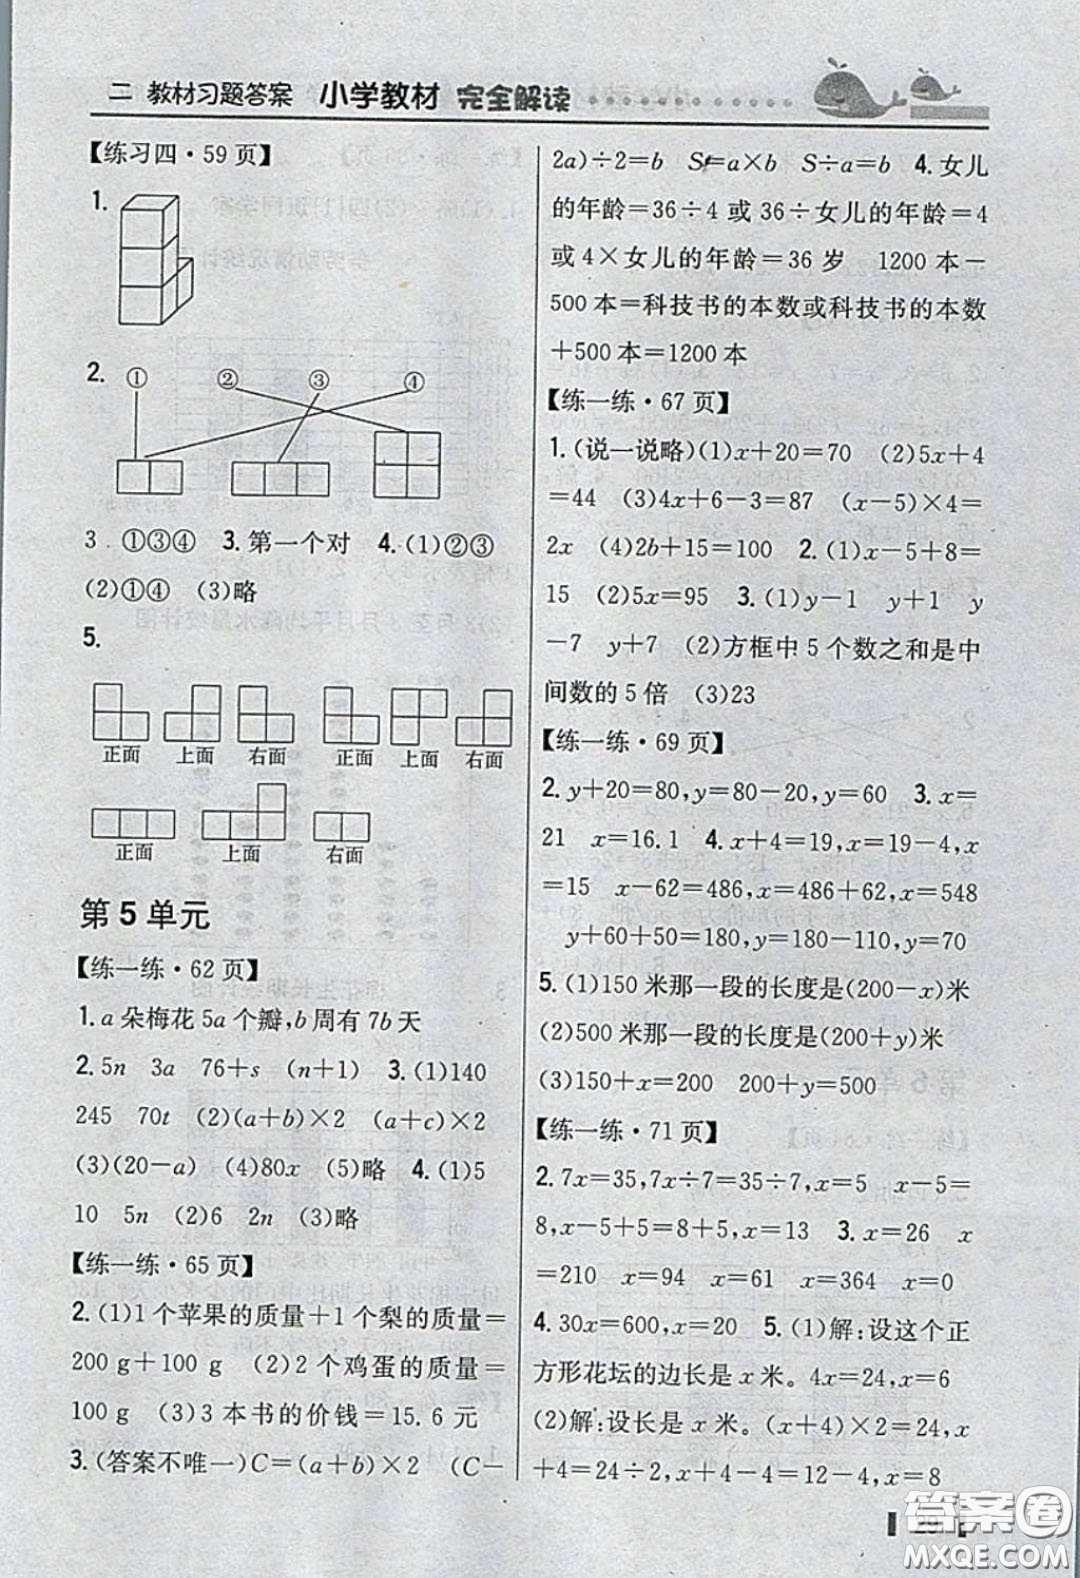 二 教材习题答案 小学教材 完全解读
【练习四·59页】
1.
2. ① ② ③ ④
3. ①③④ 3.第一个对 4.(1)②③
(2)①④ (3)略
5.
正面 上面 右面 正面 上面 右面
正面 上面 右面
第5单元
【练一练·62页】
1.a朵梅花5a个瓣,b周有7b天
2.5n 3a 76+s (n+1) 3.(1)140
245 70t (2)(a+b)×2 (a+c)×2
(3)(20-a) (4)80x (5)略 4.(1)5
10 5n (2)6 2n (3)略
【练一练·65页】
2.(1)1个苹果的质量+1个梨的质量=
200 g+100 g (2)2个鸡蛋的质量=
100 g (3)3本书的价钱=15.6元
3.(答案不唯一)C=(a+b)×2 (C-
2a)÷2=b S=a×b S÷a=b 4.女儿
的年龄=36÷4或36÷女儿的年龄=4
或4×女儿的年龄=36岁 1200本-
500本=科技书的本数或科技书的本数
+500本=1200本
【练一练·67页】
1.(说一说略)(1)x+20=70 (2)5x+4
=44 (3)4x+6-3=87 (x-5)×4=
2x (4)2b+15=100 2.(1)x-5+8=
15 (2)5x=95 3.(1)y-1 y+1 y
-7 y+7 (2)方框中5个数之和是中
间数的5倍 (3)23
【练一练·69页】
2.y+20=80,y=80-20,y=60 3.x=
21 x=16.1 4.x+4=19,x=19-4,x
=15 x-62=486,x=486+62,x=548
y+60+50=180,y=180-110,y=70
5.(1)150米那一段的长度是(200-x)米
(2)500米那一段的长度是(200+y)米
(3)150+x=200 200+y=500
【练一练·71页】
2.7x=35,7x÷7=35÷7,x=5 x-5=
8,x-5+5=8+5,x=13 3.x=26 x
=210 x=94 x=61 x=364 x=0
4.30x=600,x=20 5.(1)解:设这个正
方形花坛的边长是x米。4x=24,x=6
(2)解:设长是x米。(x+4)×2=24,x
+4=24÷2,x+4-4=12-4,x=8
29
答案圈
MXQE.COM